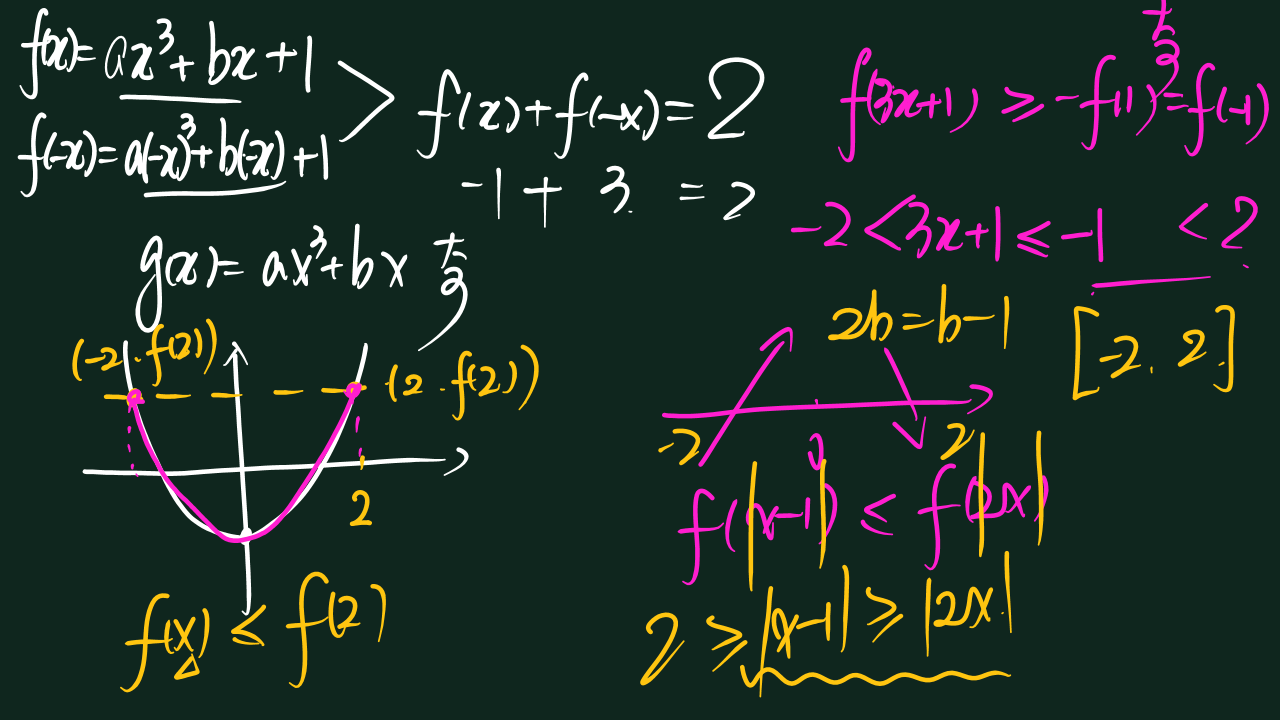 f(x)=ax³+bx+1
f(-x)=a(-x)³+b(-x)+1
f(x)+f(-x)=2
-1+3=2
g(x)=ax³+bx 奇
(-2,f(2))
(2,f(2))
2
f(x)≤f(2)
奇
f(3x+1)≥-f(1)=f(-1)
-2<3x+1≤-1 <2
2b=b-1
[-2,2]
-2 0 2
f(|x-1|)≤f(|2x|)
2≥|x-1|≥|2x|